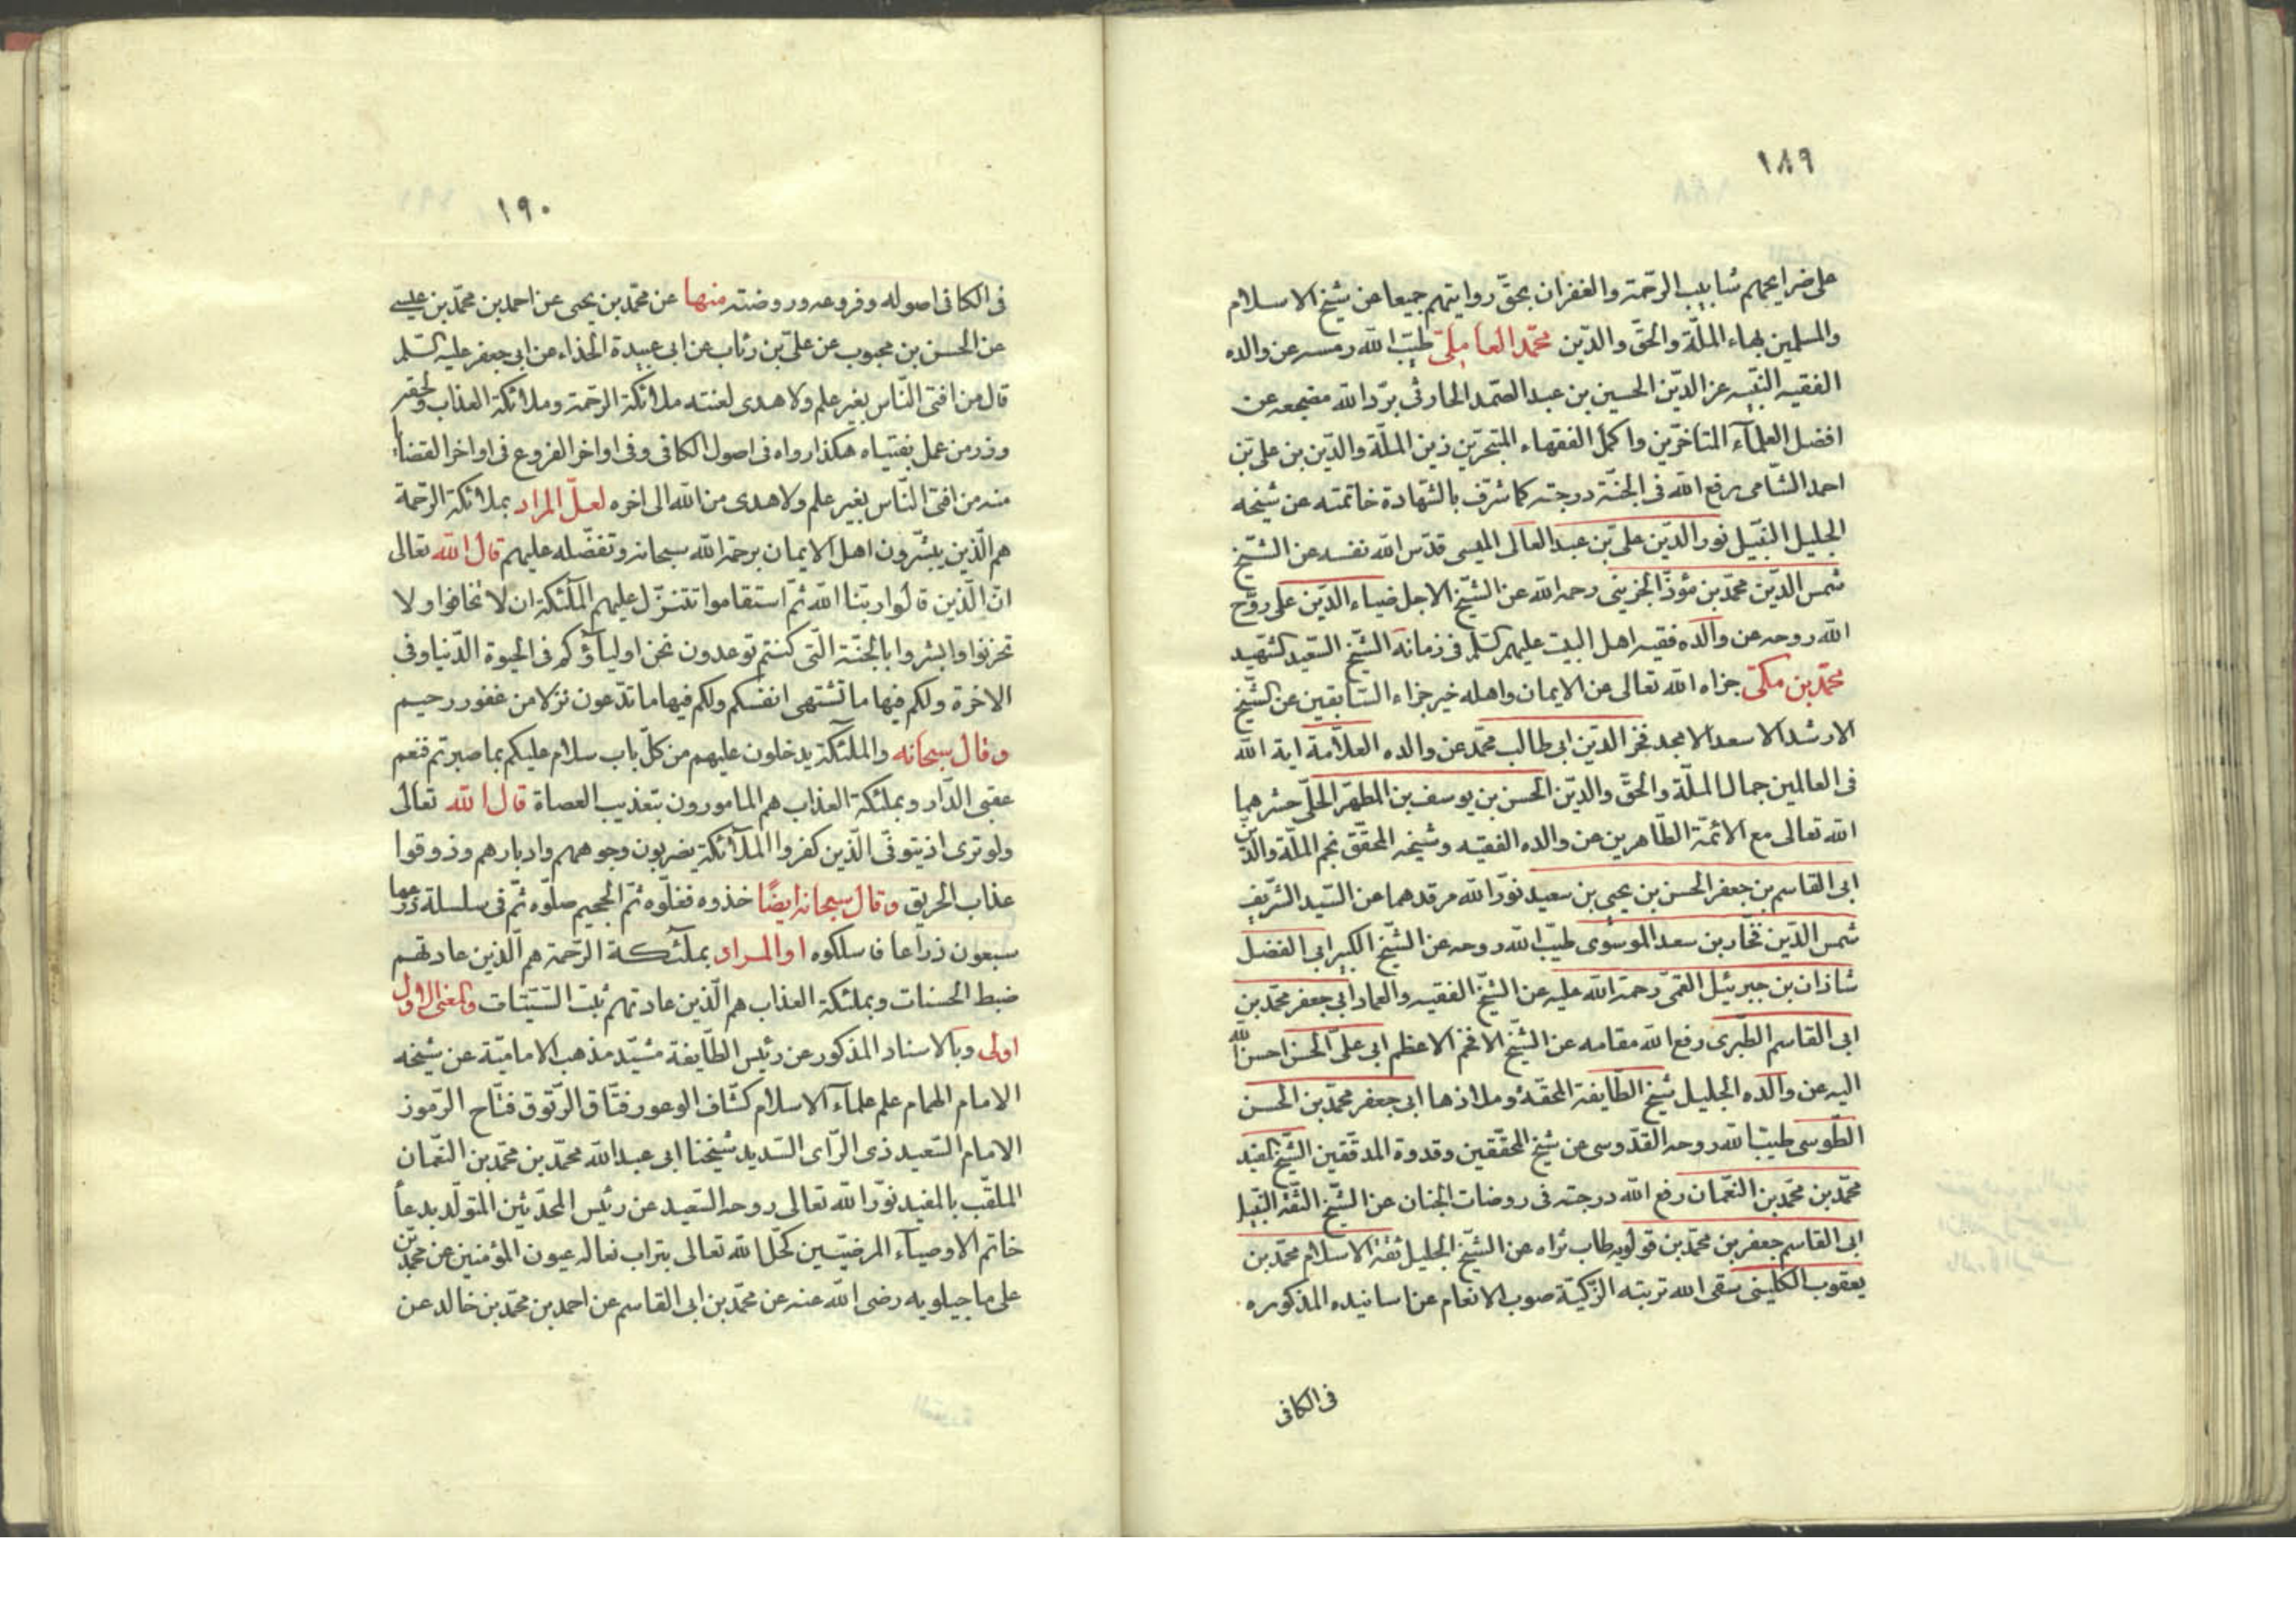 ١٨٩
على ضرايحهم شابيب الرحمة والغفران بحق روايتهم جميعا عن شيخ الاسلام
والمسلمين بهاء الملّة والحقّ والدّين محمّد العاملى طيّب اللّه رمسه عن والده
الفقيه النبّيه عز الدّين الحسين بن عبد الصّمد الحارثى برّد اللّه مضجعه عن
افضل العلمآء المتاخرّين واكمل الفقهاء المتبحرّين زين الملّة والدّين بن على بن
احمد الشّامى رفع اللّه فى الجنّة درجته كما شرّف بالشّهادة خاتمته عن شيخه
الجليل النبّيل نور الدّين على بن عبد العالى الميسى قدّس اللّه نفسه عن الشّيخ
شمس الدّين محمّد بن مؤذّن الجزينى رحمه اللّه عن الشّيخ الاجل ضياء الدّين على روّح
اللّه روحه عن والده فقيه اهل البيت عليهم السّلم فى زمانه الشّيخ السّعيد الشّهيد
محمّد بن مكّى جزاه اللّه تعالى عن الايمان واهله خير جزاء السّابقين عن الشّيخ
الارشد الاسعد الامجد فخر الدّين ابى طالب محمّد عن والده العلاّمة اية اللّه
فى العالمين جمال الملّة والحقّ والدّين الحسن بن يوسف بن المطهّر الحلّى حشرهما
اللّه تعالى مع الائمّة الطّاهرين عن والده الفقيه وشيخه المحقّق نجم الملّة والدّين
ابى القاسم بن جعفر الحسن بن يحيى بن سعيد نوّر اللّه مرقدهما عن السّيد الشّريف
شمس الدّين فخّار بن سعد الموسوى طيّب اللّه روحه عن الشّيخ الكبير ابى الفضل
شاذان بن جبرئيل القمّى رحمة اللّه عليه عن الشّيخ الفقيه والعماد ابى جعفر محمّد بن
ابى القاسم الطّبرى رفع اللّه مقامه عن الشّيخ الافخم الاعظم ابى علىّ الحسن احسن اللّه
اليه عن والده الجليل شيخ الطّايفة المحقّة وملاذها ابى جعفر محمّد بن الحسن
الطّوسى طيّب اللّه روحه القدّوسى عن شيخ المحقّقين وقدوة المدقّقين الشّيخ المفيد
محمّد بن محمّد بن النّعمان رفع اللّه درجته فى روضات الجنان عن الشّيخ الثّقة النبّيل
ابى القاسم جعفر بن محمّد بن قولويه طاب ثراه عن الشّيخ الجليل ثقة الاسلام محمّد بن
يعقوب الكلينى سقى اللّه تربته الزّكيّة صوب الانعام عن اسانيده المذكوره
فى الكافى
١٩٠
فى الكافى اصوله وفروعه وروضته منها عن محمّد بن يحيى عن احمد بن محمّد بن عيسى
عن الحسن بن محبوب عن علىّ بن رئاب عن ابى عبيدة الحذاء عن ابى جعفر عليه السّلم
قال من افتى النّاس بغير علم ولا هدى لعنته ملائكة الرّحمة وملائكة العذاب ولحقه
وزر من عمل بفتياه هكذا رواه فى اصول الكافى وفى اواخر الفروع فى اواخر القضايا
منه من افتى النّاس بغير علم ولا هدى من اللّه الى اخره لعلّ المراد بملائكة الرّحمة
هم الّذين يبشّرون اهل الايمان برحمة اللّه سبحانه وتفضّله عليهم قال اللّه تعالى
انّ الّذين قالوا ربّنا اللّه ثمّ استقاموا تتنزّل عليهم الملئكة ان لا تخافوا ولا
تحزنوا وابشروا بالجنّة الّتى كنتم توعدون نحن اولياؤكم فى الحيوة الدّنيا وفى
الاخرة ولكم فيها ما تشتهى انفسكم ولكم فيها ما تدّعون نزلا من غفور رحيم
وقال سبحانه والملئكة يدخلون عليهم من كلّ باب سلام عليكم بما صبرتم فنعم
عقبى الدّار وبملئكة العذاب هم المامورون بتعذيب العصاة قال اللّه تعالى
ولو ترى اذ يتوفّى الّذين كفروا الملآئكة يضربون وجوههم وادبارهم وذوقوا
عذاب الحريق وقال سبحانه ايضًا خذوه فغلّوه ثمّ الجحيم صلّوه ثمّ فى سلسلة ذرعها
سبعون ذراعا فاسلكوه او المراد بملئكة الرّحمة هم الّذين عادتهم
ضبط الحسنات وبملئكة العذاب هم الّذين عادتهم ثبت السّيّئات والمعنى الاول
اولى وبالاسناد المذكور عن رئيس الطّايفة مشيّد مذهب الاماميّة عن شيخه
الامام الهمام علم علمآء الاسلام كشّاف الوعور فتّاق الرّتوق فتّاح الرّموز
الامام السّعيد ذى الرّاى السّديد شيخنا ابى عبد اللّه محمّد بن محمّد بن النّعمان
الملقّب بالمفيد نوّر اللّه تعالى روحه السّعيد عن رئيس المحدّثين المتولّد بدعآ
خاتم الاوصيآء المرضيّين كحّل اللّه تعالى بتراب نعاله عيون المؤمنين عن محمّد بن
على ماجيلويه رضى اللّه عنه عن محمّد بن ابى القاسم عن احمد بن محمّد بن خالد عن